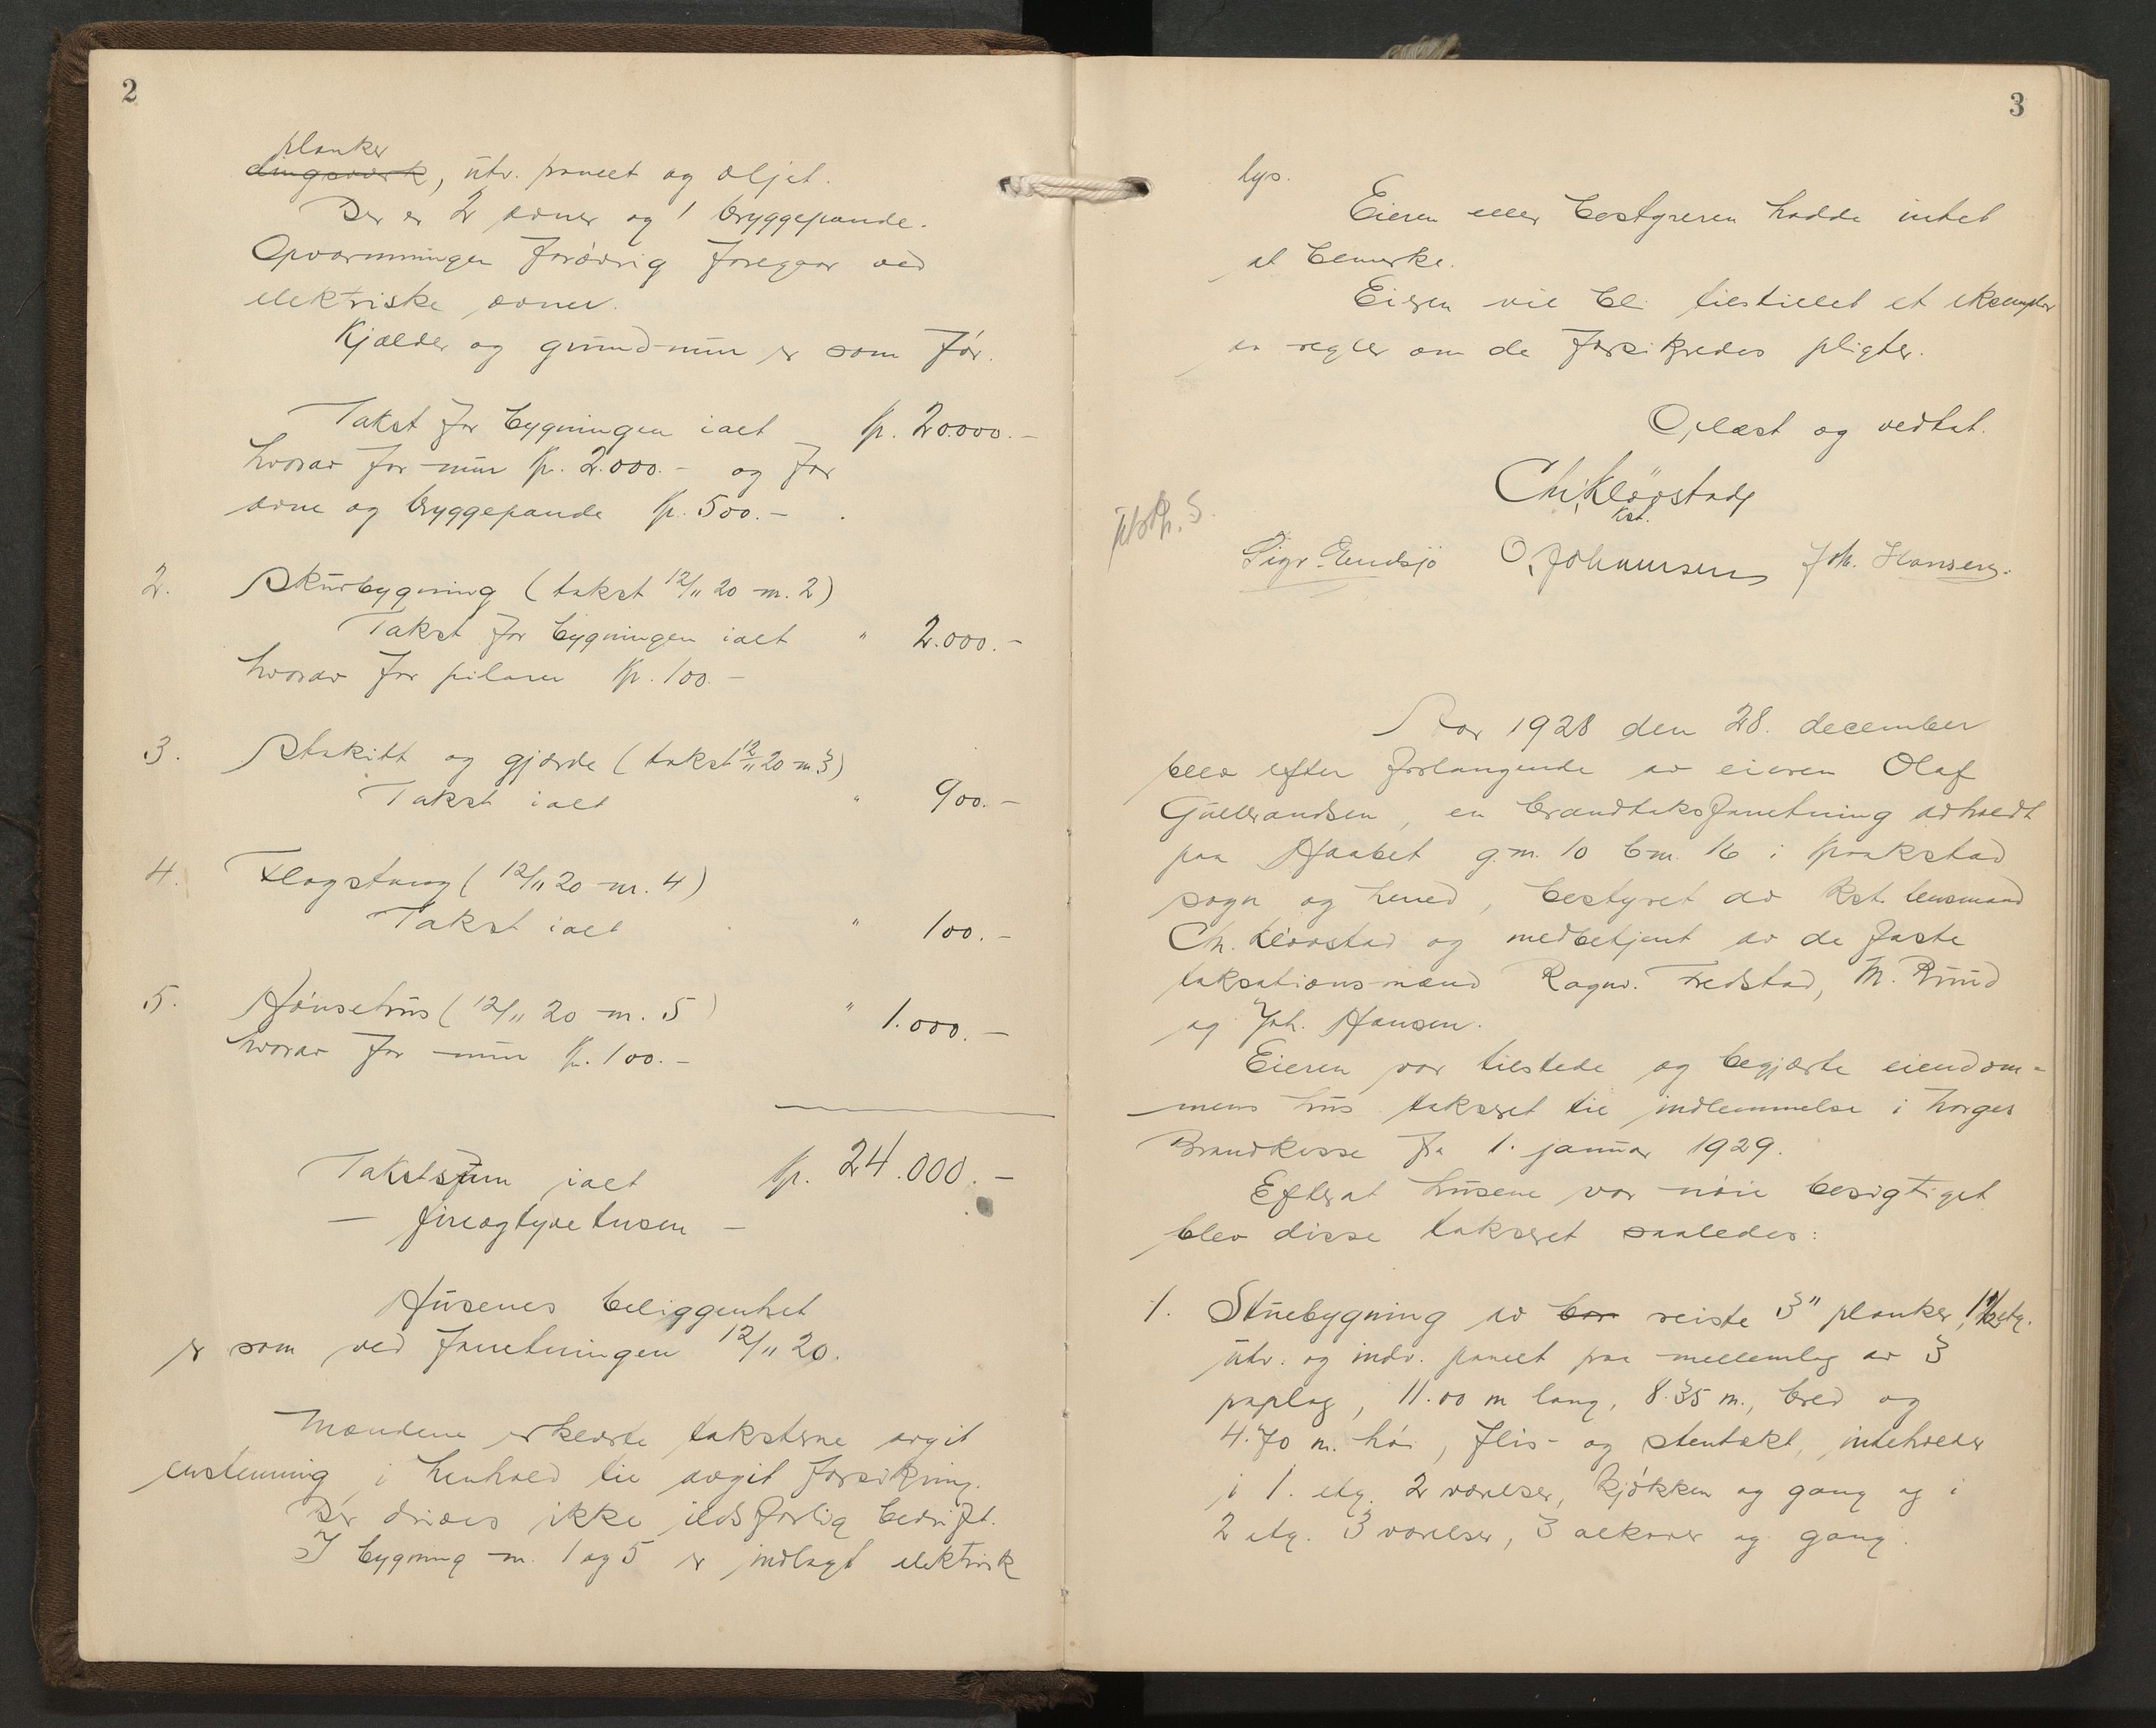 2
planker
dingsverk, utv. panelt og oljet.
Der er 2 ovner og 1 bryggepande.
Opvarmningen forøvrig foregaar ved
elektriske ovner.
Kjælder og grundmur er som før.
Takst for bygningen ialt kr. 20.000.-
hvorav for mur kr. 2.000.- og for
ovne og bryggepande kr. 500.-
2. Skurbygning (takst 12/11 20 nr. 2)
Takst for bygningen ialt " 2.000.-
hvorav for pilarer kr. 100.-
3. Stakitt og gjærde (takst 12/11 20 nr 3)
Takst ialt " 900.-
4. Flagstang (12/11 20 nr. 4)
Takst ialt " 100.-
5. Hønsehus (12/11 20 nr. 5) " 1.000.-
hvorav for mur kr. 100.-
Takstsum ialt kr. 24.000.-
- fireogtyvetusen -
Husenes beliggenhet
er som ved forretningen 12/11 20.
Mændene erklærte taksterne avgit
enstemmig i henhold til avgit forsikring.
Der drives ikke ildsfarlig bedrift.
I bygning nr. 1 og 5 er indlagt elektrisk
3
lys.
Eieren eller bestyreren hadde intet
at bemerke.
Eieren vil bli tilstillet et eksemplar
av regler om de forsikredes pligter.
Oplæst og vedtat.
Chr. Kløvstad
kst.
Sigv. Endsjø O. Johannesen Joh. Hansen.
Aar 1928 den 28. december
blev efter forlangende av eieren Olaf
Gulbrandsen, en brandtaksforretning avholdt
paa Haabet g.nr. 10 b.nr. 16 i Kraakstad
sogn og herred, bestyret av kst. lensmand
Ch. Kløvstad og medbetjent av de faste
taksationsmænd Ragnv. Fredstad, M. Ruud
og Joh. Hansen.
Eieren var tilstede og begjærte eiendom-
mens hus taksert til indlemmelse i Norges
Brandkasse fra 1. januar 1929.
Efterat husene var nøie besigtiget
blev disse taksert saaledes:
1. Stuebygning av bor reiste 3" planker, 1 1/2 etg.
utv. og indv. panelt paa mellemlag av 3
paplag, 11.00 m lang, 8.35 m., bred og
4.70 m. høi, flis- og stentækt, indeholder
i 1. etg. 2 værelser, kjøkken og gang og i
2 etg. 3 værelser, 3 alkover og gang.